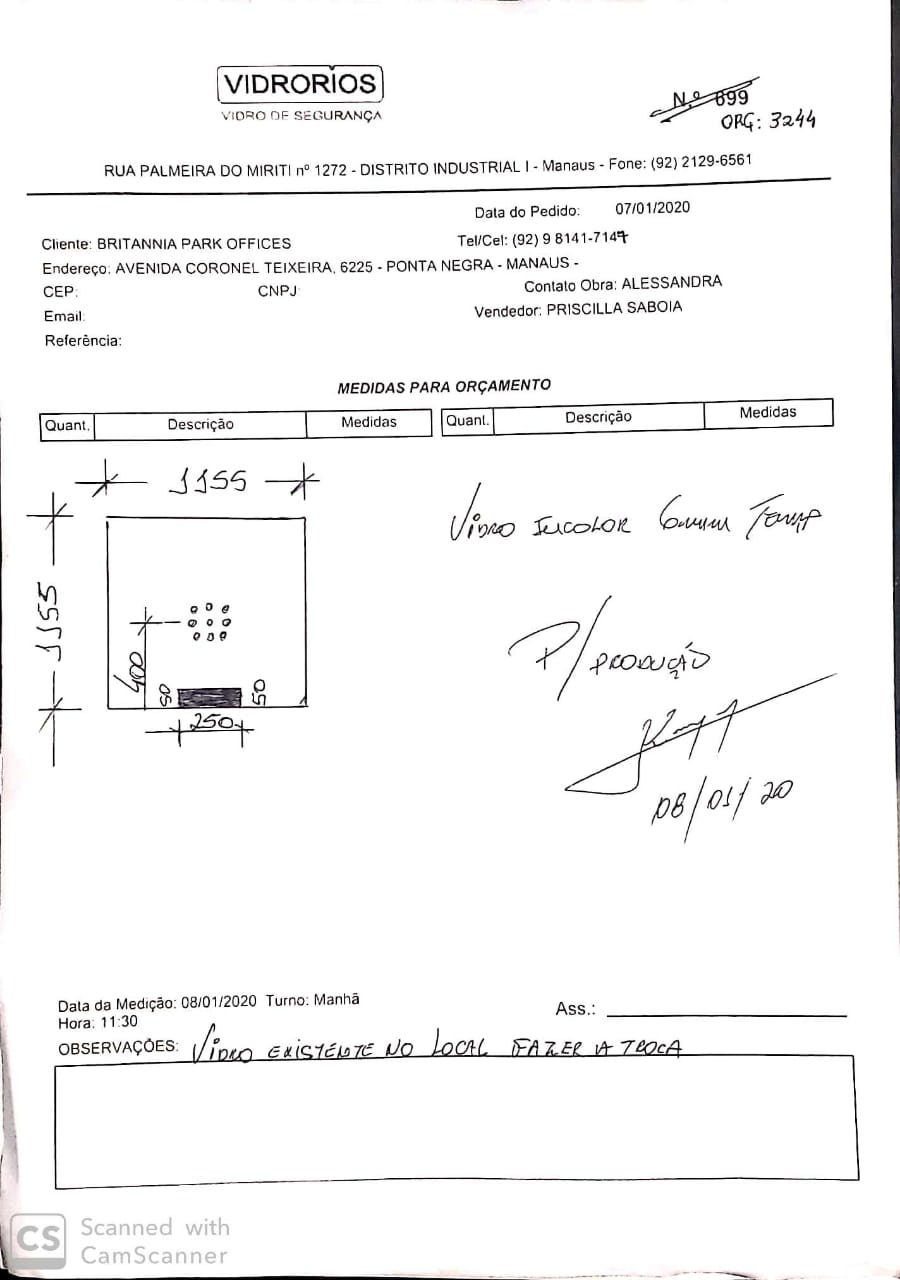 VIDRORIOS
VIDRO DE SEGURANÇA
N.º 699
ORG: 3244
RUA PALMEIRA DO MIRITI nº 1272 - DISTRITO INDUSTRIAL I - Manaus - Fone: (92) 2129-6561
Data do Pedido: 07/01/2020
Cliente: BRITANNIA PARK OFFICES Tel/Cel: (92) 9 8141-7147
Endereço: AVENIDA CORONEL TEIXEIRA, 6225 - PONTA NEGRA - MANAUS -
CEP: CNPJ: Contato Obra: ALESSANDRA
Email: Vendedor: PRISCILLA SABOIA
Referência:
MEDIDAS PARA ORÇAMENTO
Quant. Descrição Medidas Quant. Descrição Medidas
1155
VIDRO INCOLOR 6mm TEMP
1155
P/ PRODUÇÃO
400
50 50
250
08/01/20
Data da Medição: 08/01/2020 Turno: Manhã
Hora: 11:30
Ass.:
OBSERVAÇÕES: VIDRO EXISTENTE NO LOCAL FAZER A TROCA
CS Scanned with
CamScanner